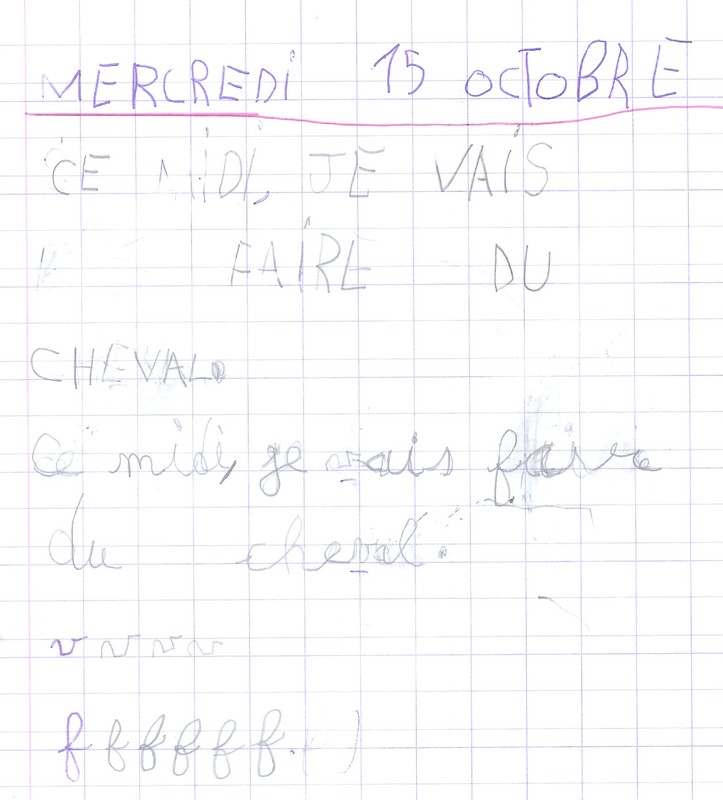 MERCREDI 15 OCTOBRE
CE MIDI, JE VAIS
FAIRE DU
CHEVAL.
Ce midi, je vais faire
du cheval.
v v v v v
f f f f f f.